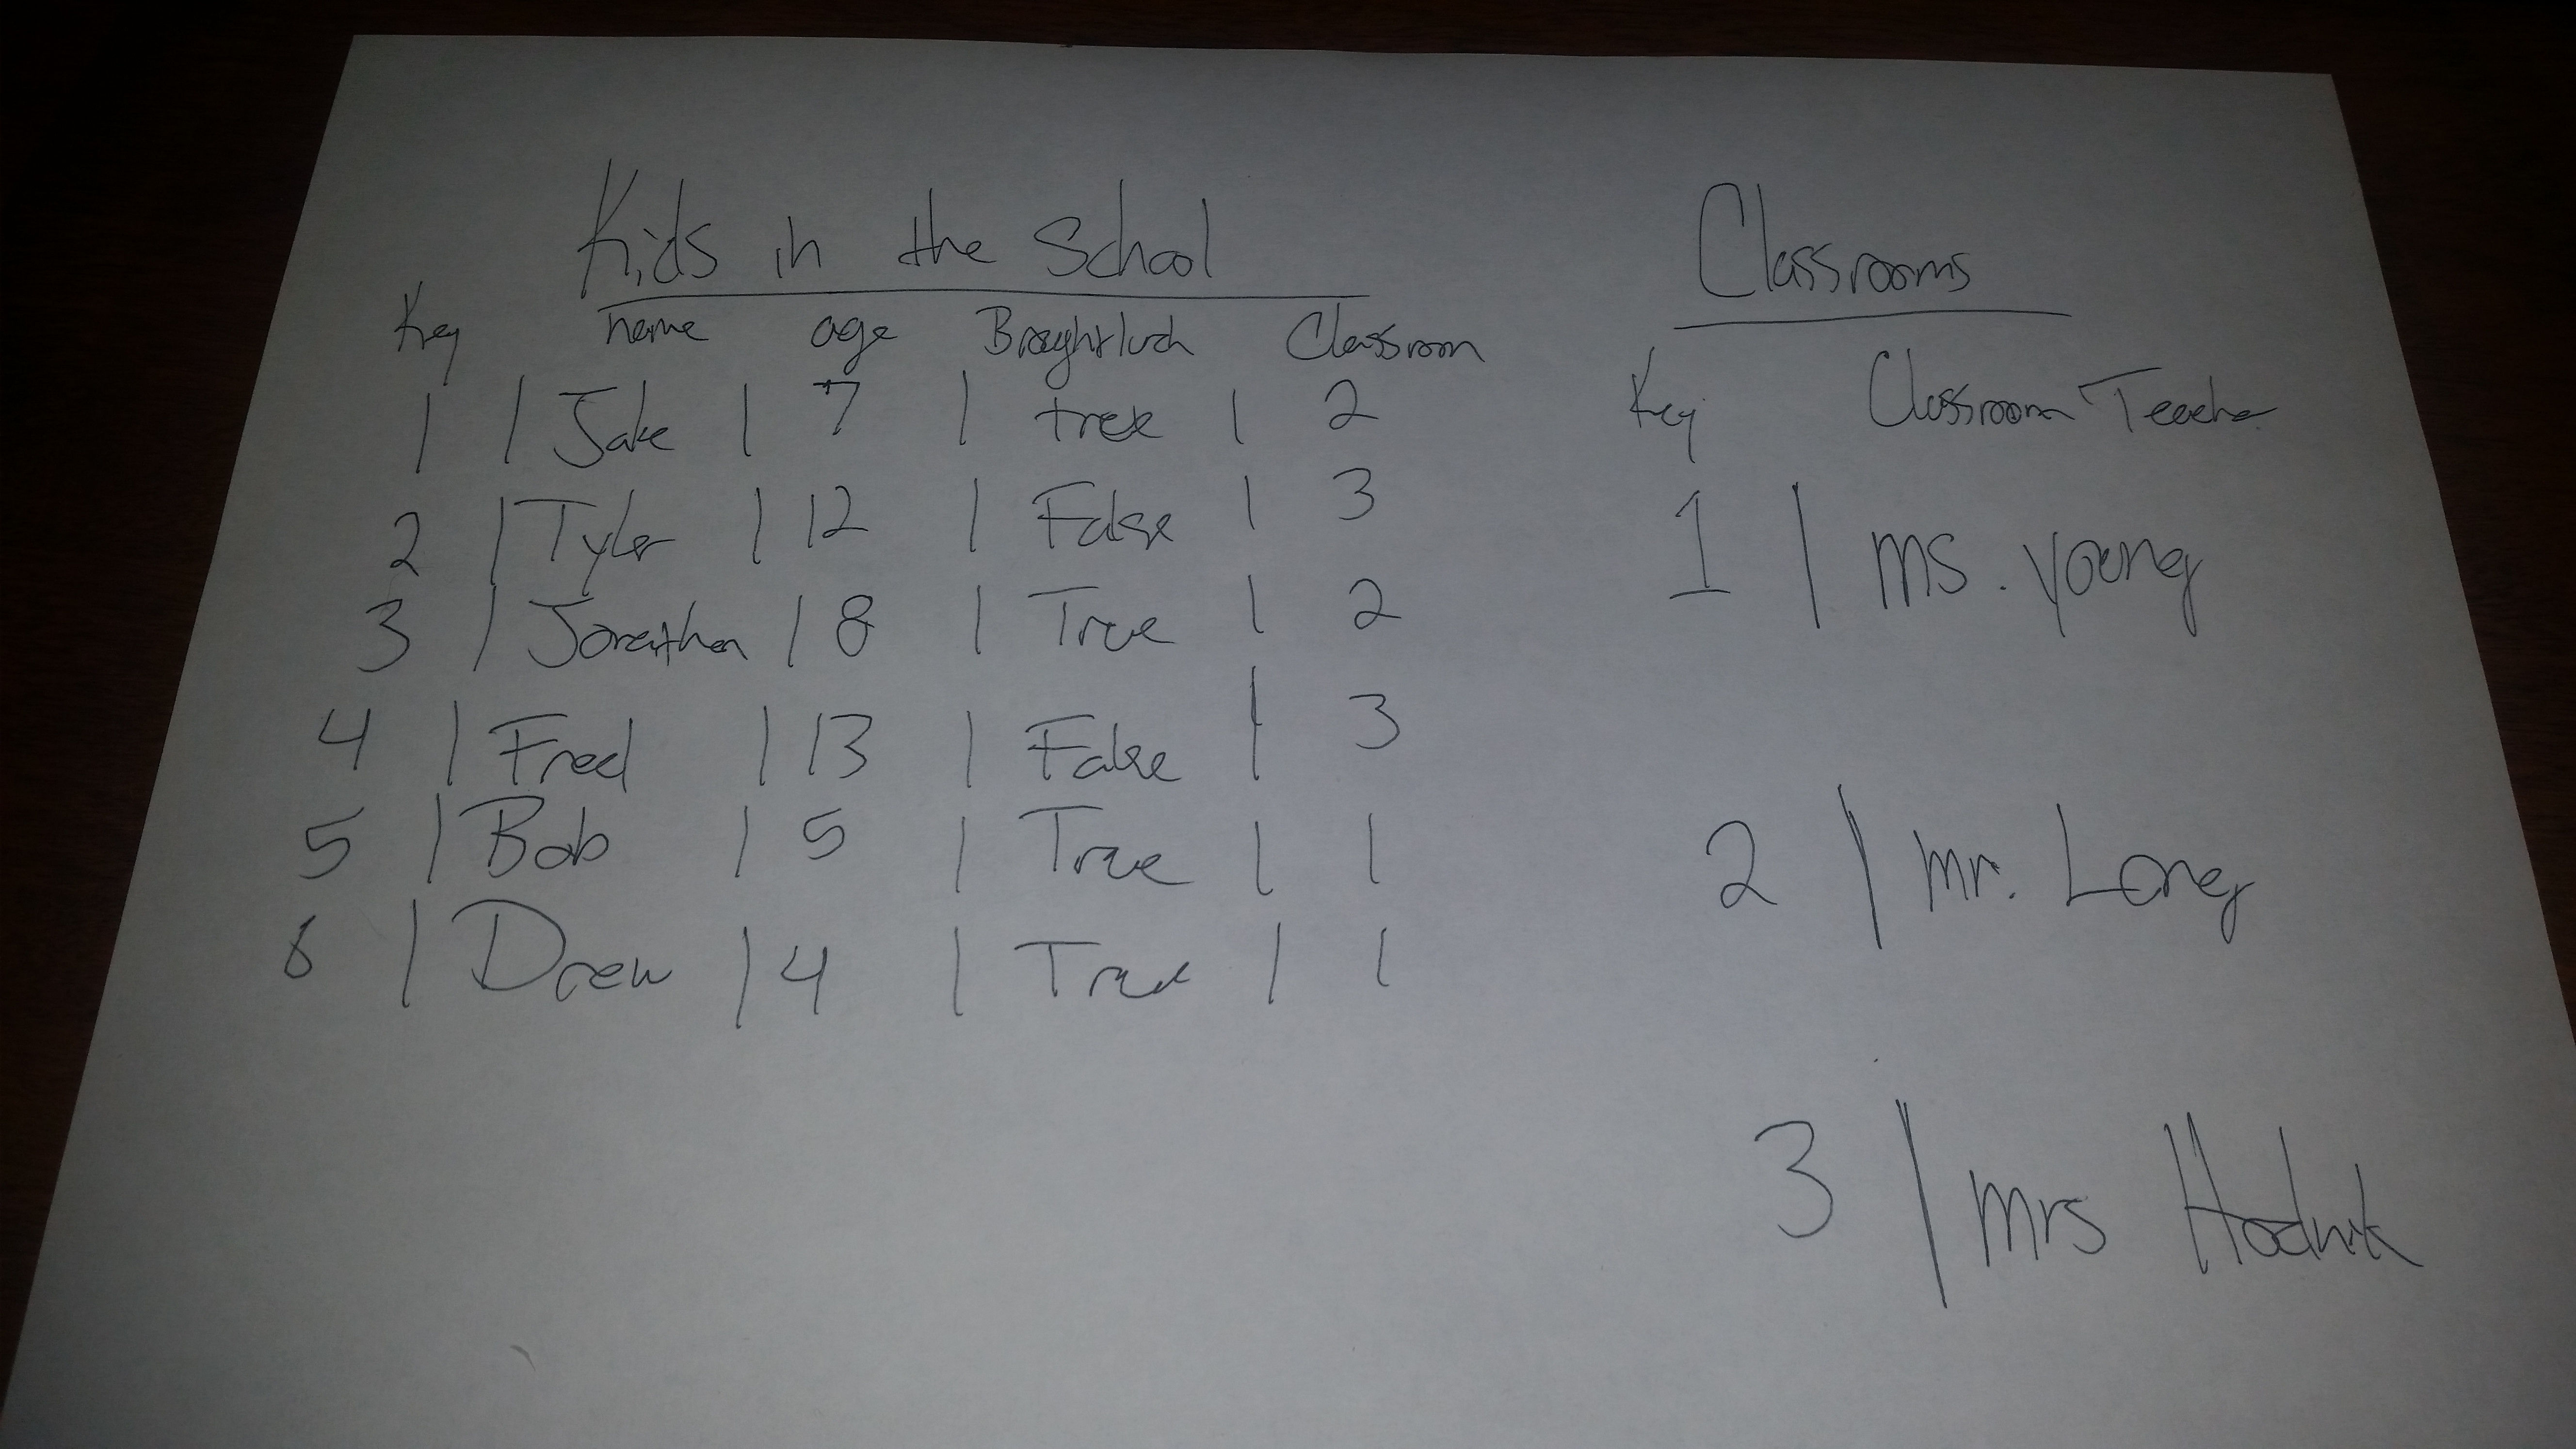 Kids in the School
Key name age Broughtlunch Classroom
1 | Jake | 7 | true | 2
2 | Tyler | 12 | False | 3
3 | Jonathan | 8 | True | 2
4 | Fred | 13 | False | 3
5 | Bob | 5 | True | 1
6 | Drew | 4 | True | 1
Classrooms
Key Classroom Teacher
1 | ms. young
2 | mr. Long
3 | mrs